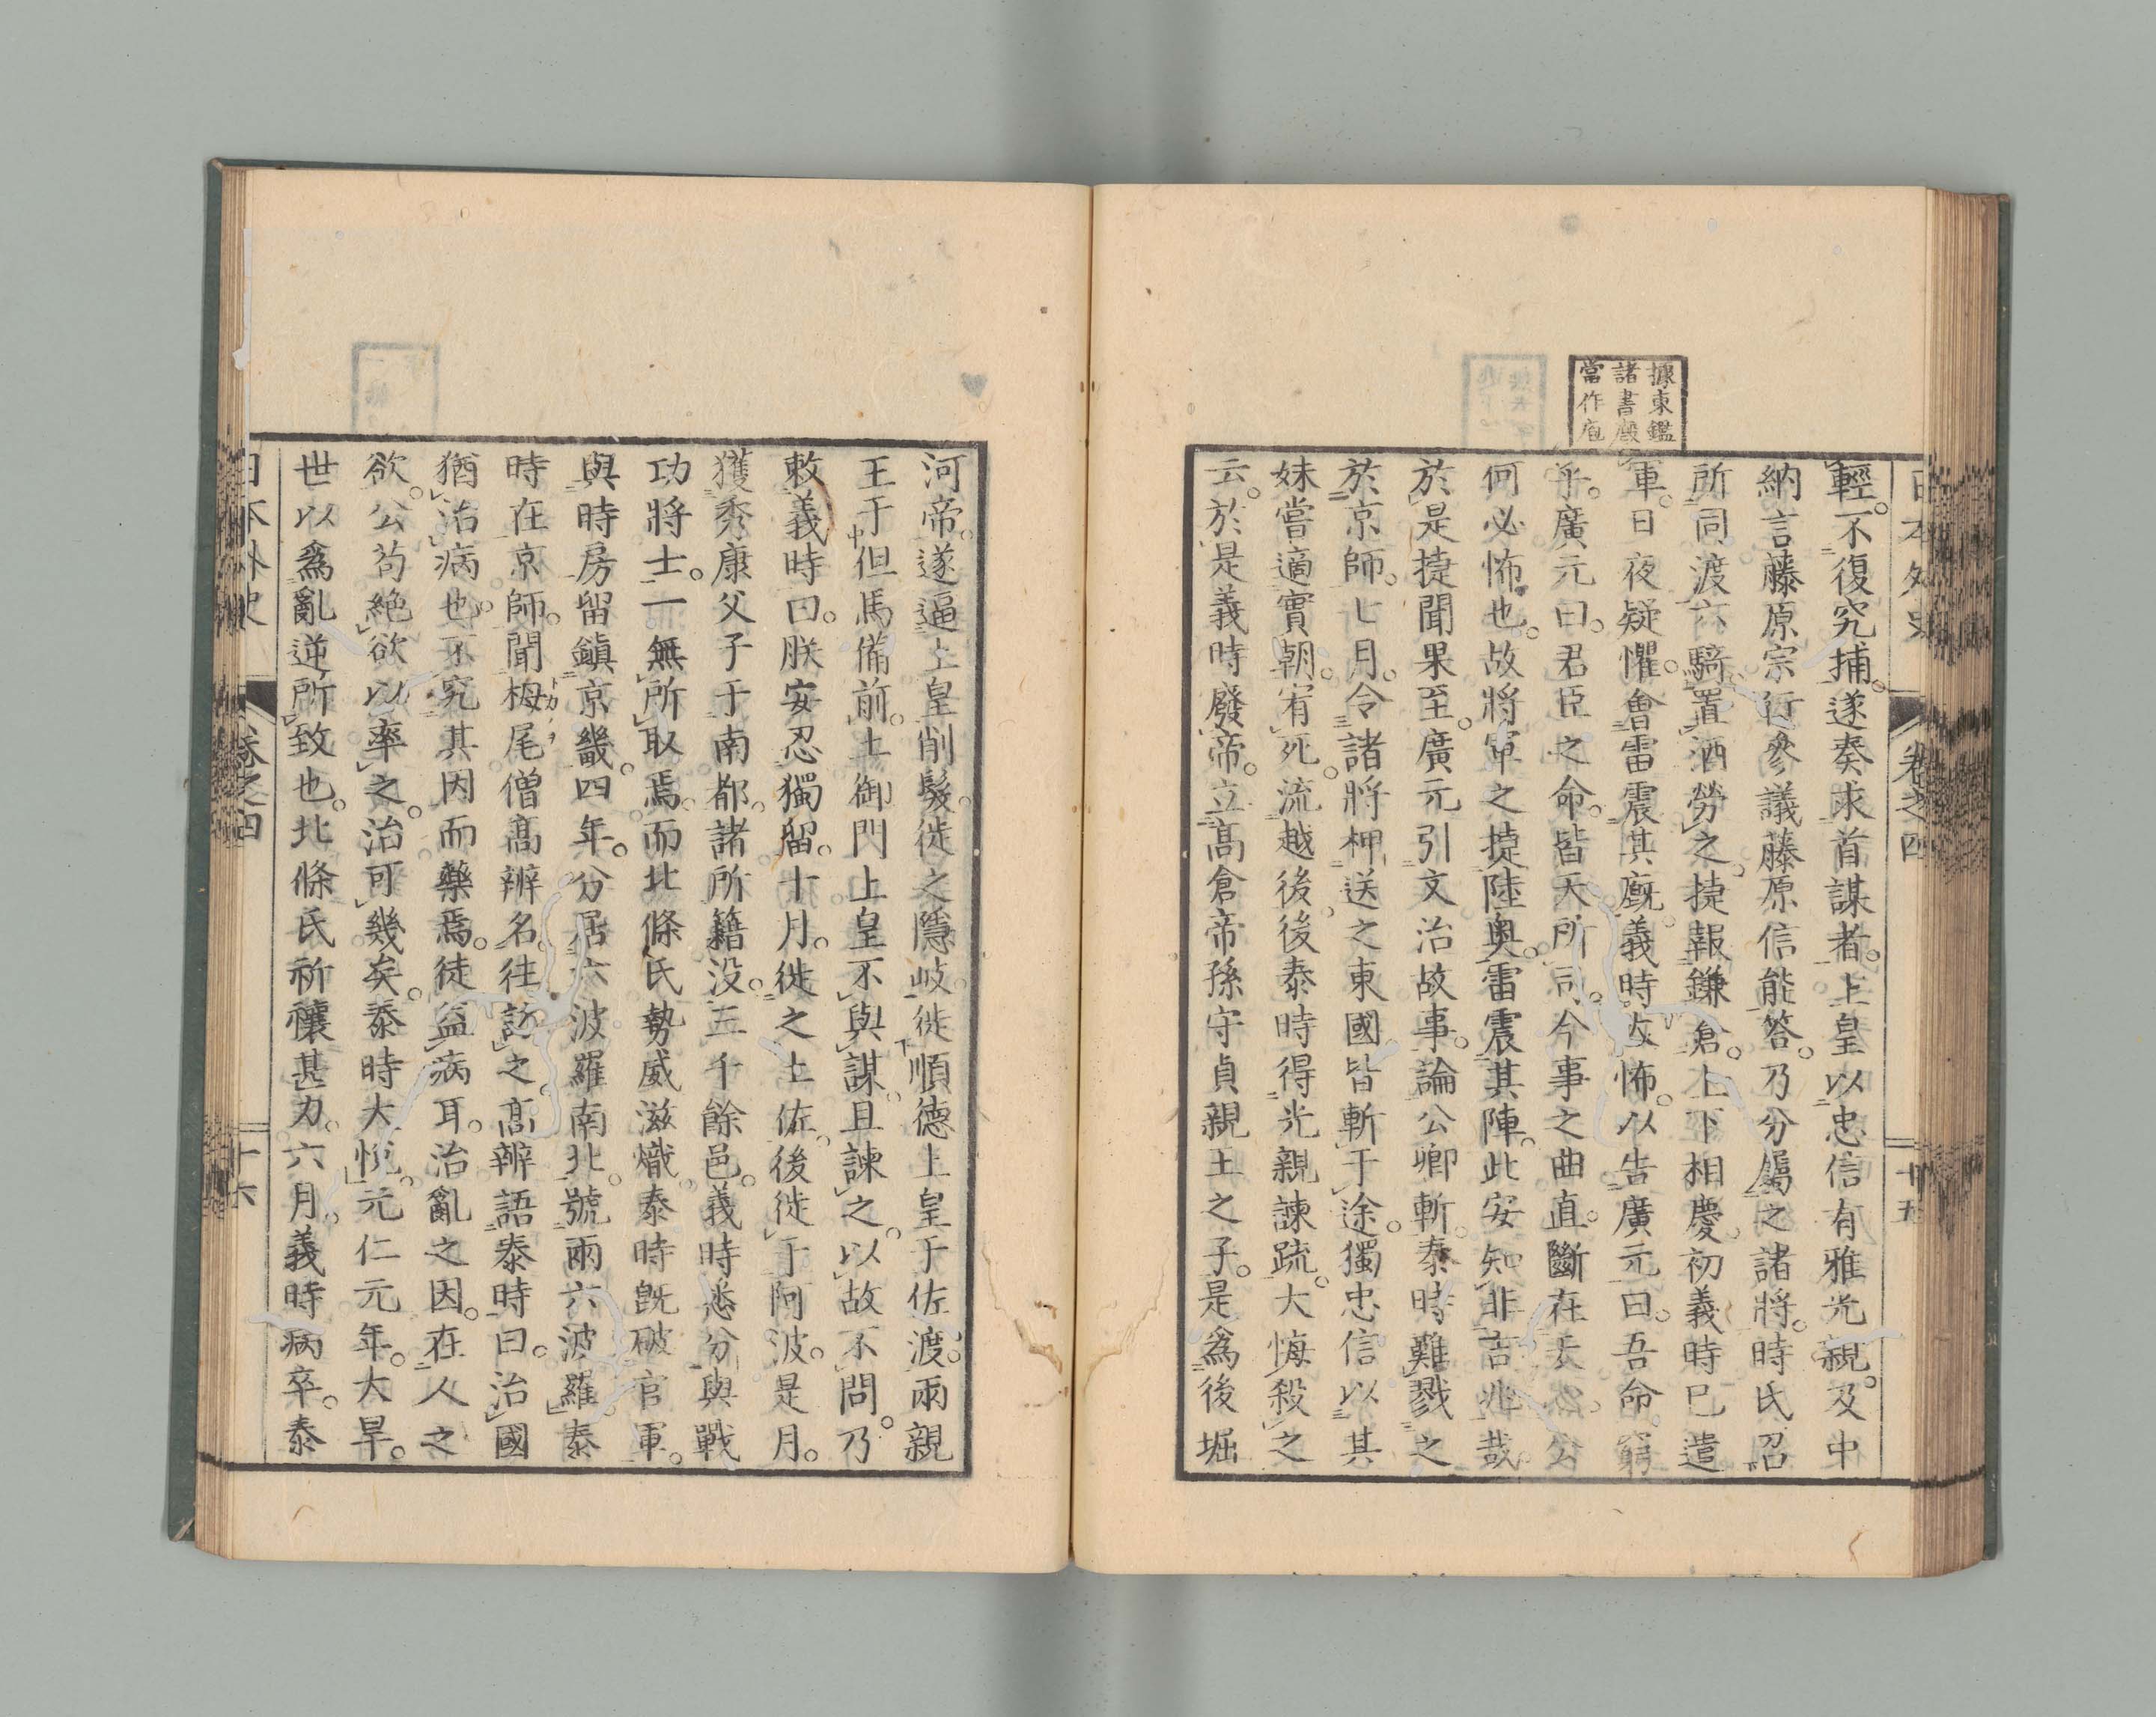 日本外史
卷之四
十五
據東鑑
諸書廐
當作庖
輕。不復究捕。遂奏求首謀者。上皇以忠信有雅光親。及中
納言藤原宗行參議藤原信能答。乃分屬之諸將。時氏招
所同渡六騎置酒勞之。捷報鎌倉。上下相慶。初義時已遣
軍。日夜疑懼。會雷震其廐。義時大怖。以告廣元曰。吾命窮
乎。廣元曰。君臣之命。皆天所司。今事之曲直。斷在天。公
何必怖也。故將軍之捷陸奧。雷震其陣。此安知非吉兆哉。
於是捷聞果至。廣元引文治故事。論公卿斬。泰時難戮之
於京師。七月。令諸將柙送之東國。皆斬于途。獨忠信以其
妹嘗適實朝。宥死。流越後。後泰時得光親諫疏。大悔殺之
云。於是義時廢帝。立高倉帝孫守貞親王之子。是爲後堀
河帝。遂逼上皇削髮。徙之隱岐。徙順德上皇于佐渡。兩親
王于但馬備前。土御門上皇不與謀。且諫之。以故不問。乃
敕義時曰。朕安忍獨留。十月。徙之土佐。後徙于阿波。是月。
獲秀康父子于南都。諸所籍沒。三千餘邑。義時悉分與戰
功將士。一無所取焉。而北條氏勢威滋熾。泰時既破官軍。
與時房留鎭京畿。四年。分居六波羅南北。號兩六波羅。泰
時在京師。聞栂尾僧高辨名。往訪之。高辨語泰時曰。治國
猶治病也。不究其因而藥焉。徒益病耳。治亂之因。在人之
欲。公苟絶欲以率之。治可幾矣。泰時大悅。元仁元年。大旱。
世以爲亂逆所致也。北條氏祈禳甚力。六月。義時病卒。泰
日本外史
卷之四
十六